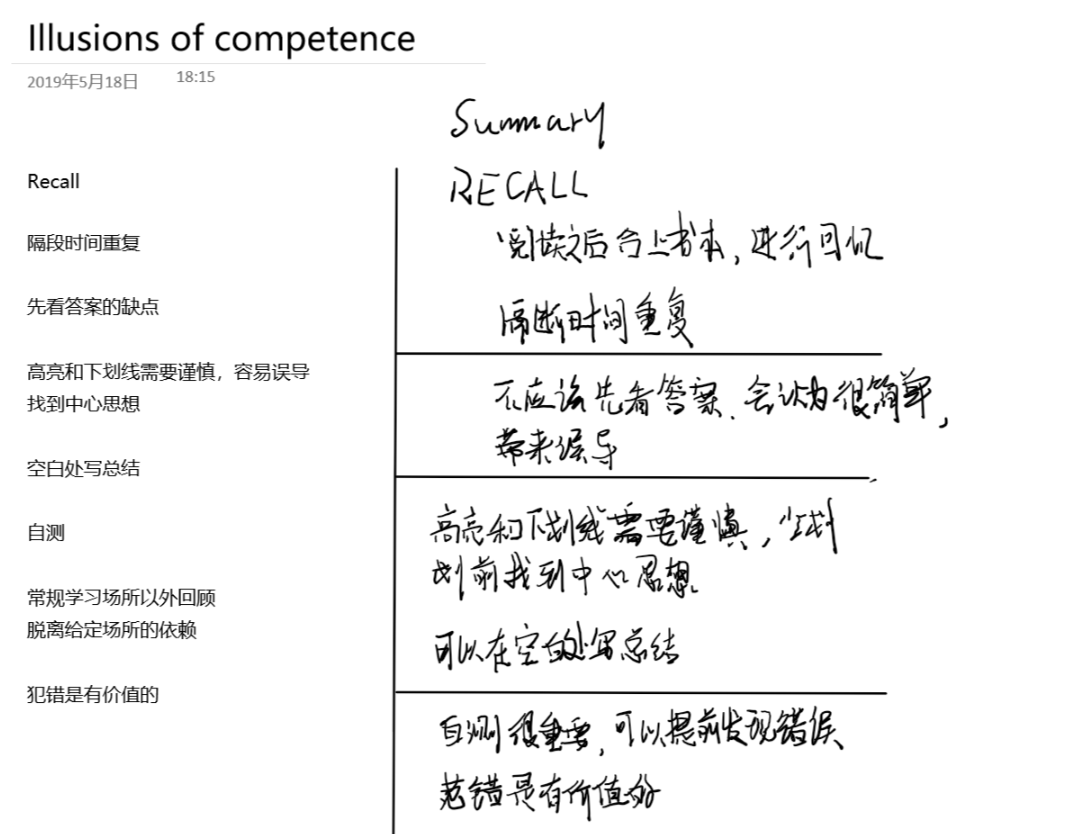 Illusions of competence
2019年5月18日 18:15
Recall
隔段时间重复
先看答案的缺点
高亮和下划线需要谨慎，容易误导
找到中心思想
空白处写总结
自测
常规学习场所以外回顾
脱离给定场所的依赖
犯错是有价值的
Summary
RECALL
阅读之后合上书本，进行回忆
隔断时间重复
不应该先看答案、会认为很简单，
带来误导
高亮和下划线需要谨慎，少划
划前找到中心思想.
可以在空白处写总结
自测很重要，可以提前发现错误、
范错是有价值的